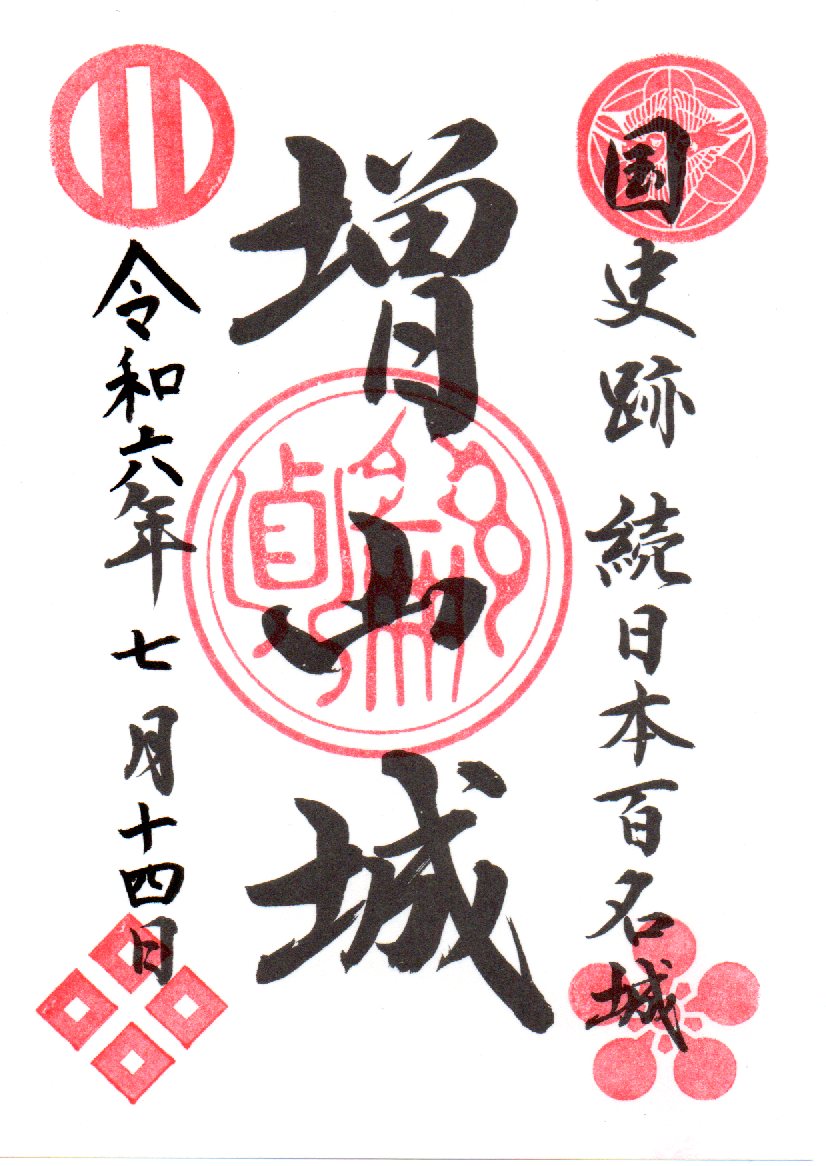 国史跡 続日本百名城
増山城
令和六年七月十四日